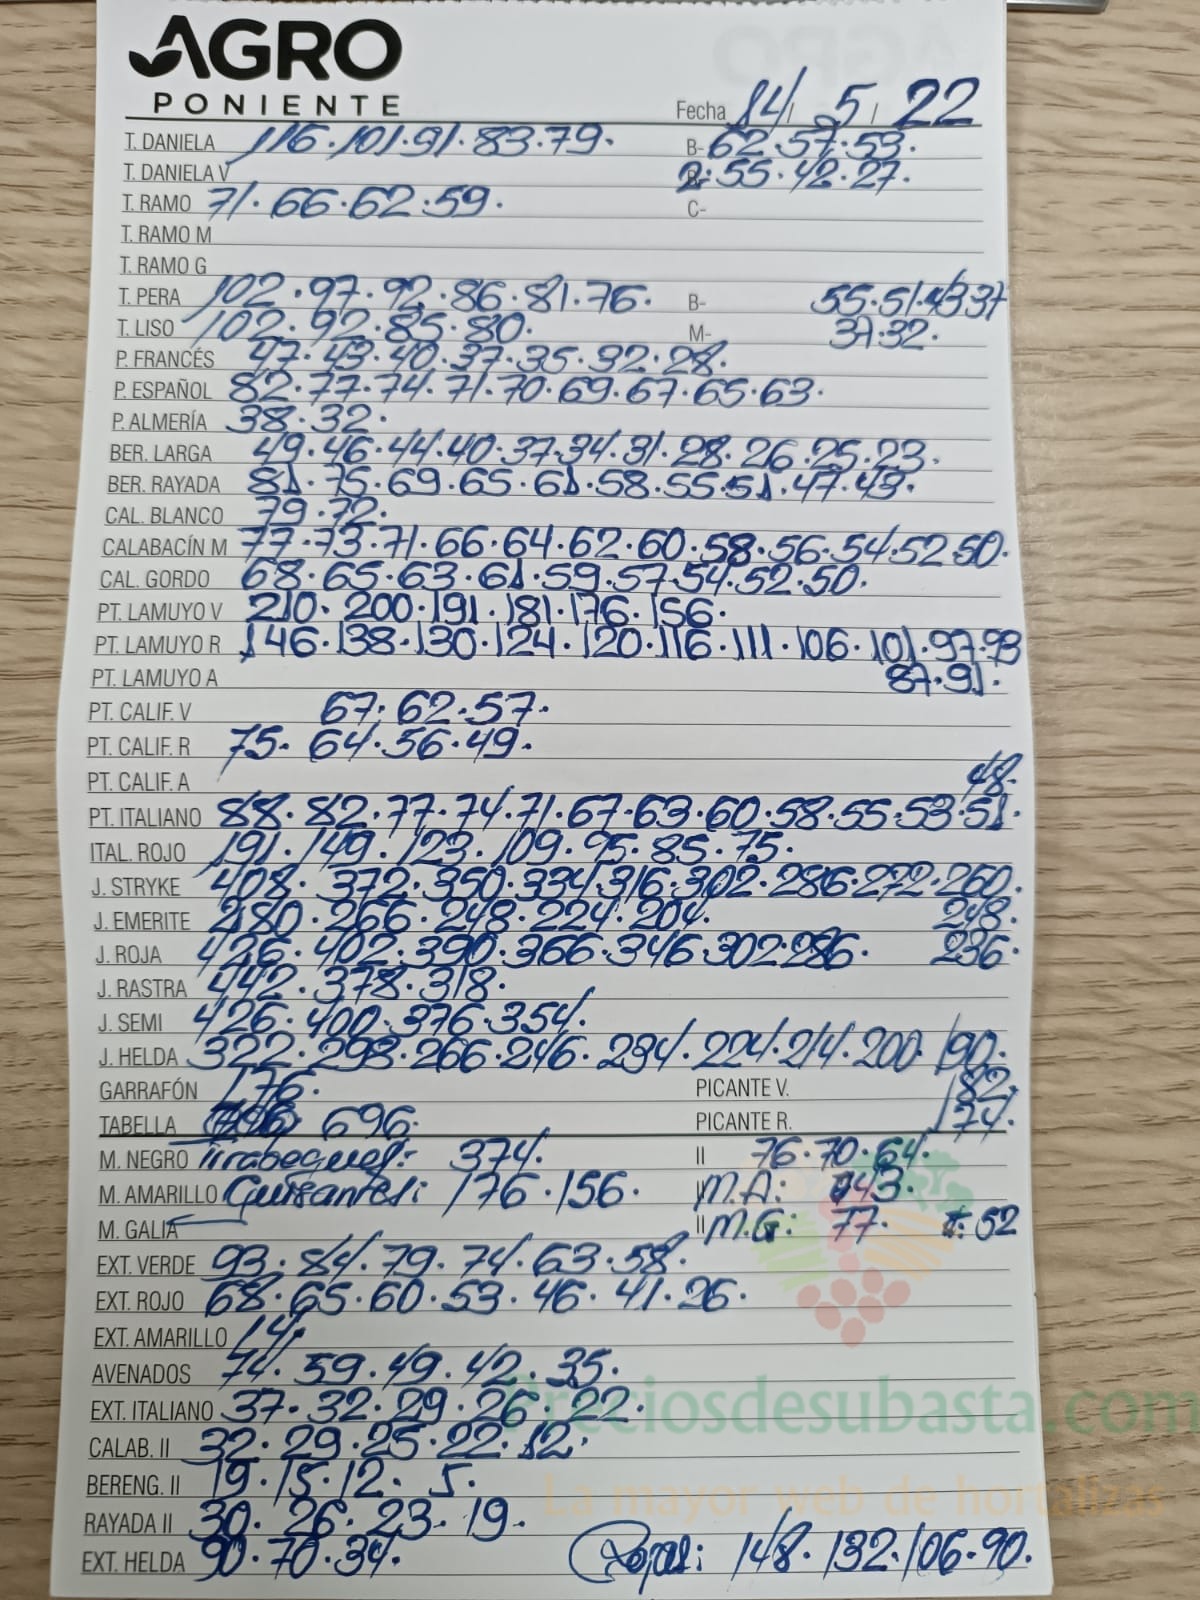 AGRO
PONIENTE
Fecha 14/ 5/ 22
T. DANIELA 116·101·91·83·79· B- 62·57·53·
T. DANIELA V 2·55·42·27·
T. RAMO 71·66·62·59· C-
T. RAMO M
T. RAMO G
T. PERA 102·97·92·86·81·76· B- 55·51·43·37
T. LISO 102·92·85·80· M- 37·32·
P. FRANCÉS 47·43·40·37·35·32·28·
P. ESPAÑOL 82·77·74·71·70·69·67·65·63·
P. ALMERÍA 38·32·
BER. LARGA 49·46·44·40·37·34·31·28·26·25·23·
BER. RAYADA 81·75·69·65·61·58·55·51·47·43·
CAL. BLANCO 79·72·
CALABACÍN M 77·73·71·66·64·62·60·58·56·54·52·50·
CAL. GORDO 68·65·63·61·59·57·54·52·50·
PT. LAMUYO V 210·200·191·181·176·156·
PT. LAMUYO R 146·138·130·124·120·116·111·106·101·97·93
PT. LAMUYO A 87·91·
PT. CALIF. V 67·62·57·
PT. CALIF. R 75·64·56·49·
PT. CALIF. A 48·
PT. ITALIANO 88·82·77·74·71·67·63·60·58·55·53·51·
ITAL. ROJO 191·149·123·109·95·85·75·
J. STRYKE 408·372·350·334·316·302·286·272·260·
J. EMERITE 280·266·248·224·204· 248·
J. ROJA 426·402·390·366·346·302·286· 236·
J. RASTRA 442·378·318·
J. SEMI 426·400·376·354·
J. HELDA 322·298·266·246·234·224·214·200·190·
GARRAFÓN 176· PICANTE V. 182·
TABELLA 696· PICANTE R. 174·
M. NEGRO Tirabeques: 374· II 76·70·64·
M. AMARILLO Guisantes: 176·156· II M.A: 43·
M. GALIA II M.G: 77· 52
EXT. VERDE 93·84·79·74·63·58·
EXT. ROJO 68·65·60·53·46·41·26·
EXT. AMARILLO 14·
AVENADOS 74·59·49·42·35·
EXT. ITALIANO 37·32·29·26·22·
Preciosdesubasta.com
CALAB. II 32·29·25·22·12·
BERENG. II 19·15·12·5·
La mayor web de hortalizas
RAYADA II 30·26·23·19·
EXT. HELDA 90·70·34· Rojas: 148·132·106·90·